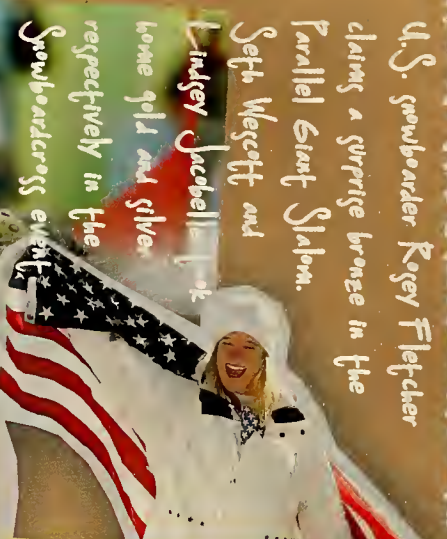 U.S. snowboarder Rosey Fletcher
claims a surprise bronze in the
Parallel Giant Slalom.
Seth Wescott and
Lindsey Jacobellis
home gold and silver
respectively in the
Snowboardcross event